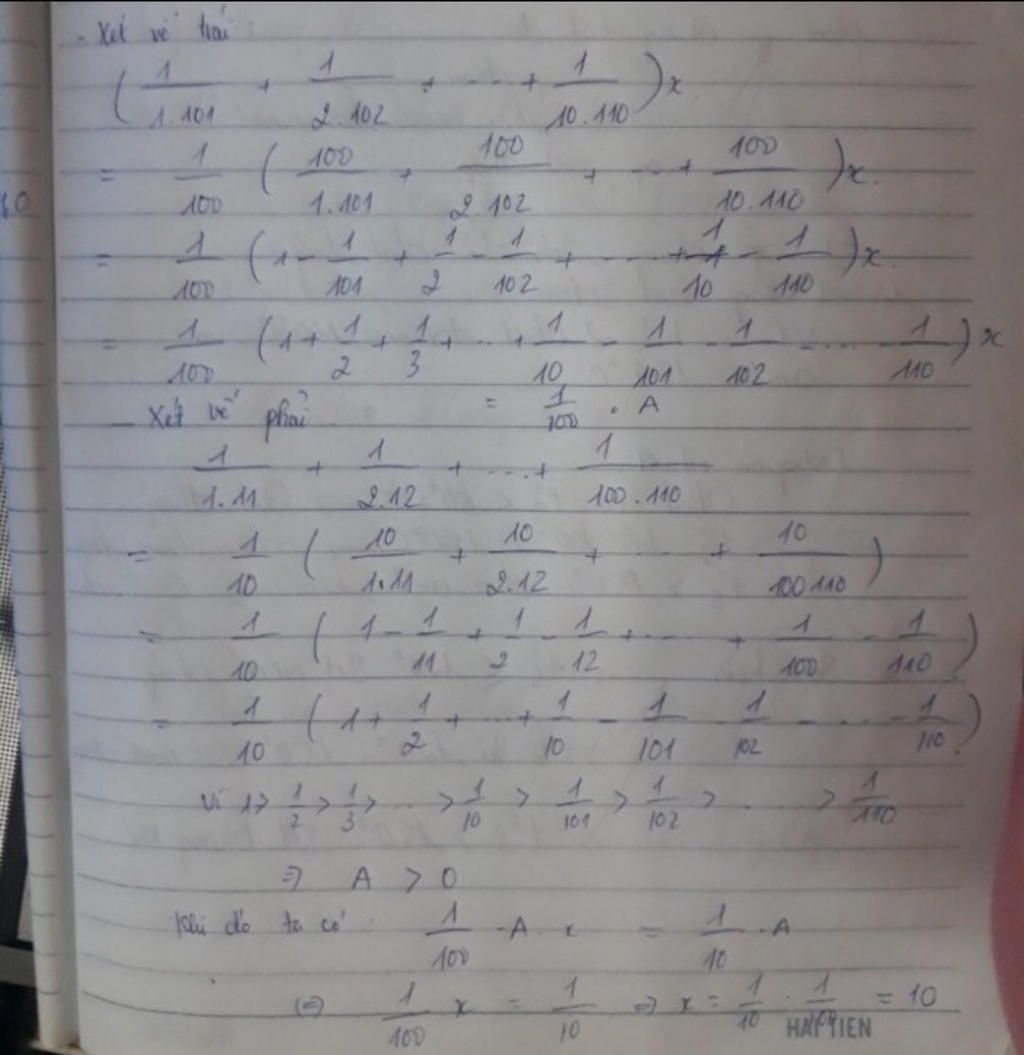 - Xét vế trái:
( 1/1.101 + 1/2.102 + ... + 1/10.110 ) x
= 1/100 ( 100/1.101 + 100/2.102 + ... + 100/10.110 ) x.
= 1/100 ( 1 - 1/101 + 1/2 - 1/102 + ... + 1/10 - 1/110 ) x.
= 1/100 ( 1 + 1/2 + 1/3 + ... + 1/10 - 1/101 - 1/102 - ... - 1/110 ) x
= 1/100 . A
- Xét vế phải
1/1.11 + 1/2.12 + ... + 1/100.110
= 1/10 ( 10/1.11 + 10/2.12 + ... + 10/100.110 )
= 1/10 ( 1 - 1/11 + 1/2 - 1/12 + ... + 1/100 - 1/110 )
= 1/10 ( 1 + 1/2 + ... + 1/10 - 1/101 - 1/102 - ... - 1/110 )
Vì 1 > 1/2 > 1/3 > ... > 1/10 > 1/101 > 1/102 > ... > 1/110
⇒ A > 0
Khi đó ta có 1/100 . A . x = 1/10 . A
(=) 1/100 x = 1/10 ⇒ x = 1/10 : 1/100 = 10
HẢI TIẾN